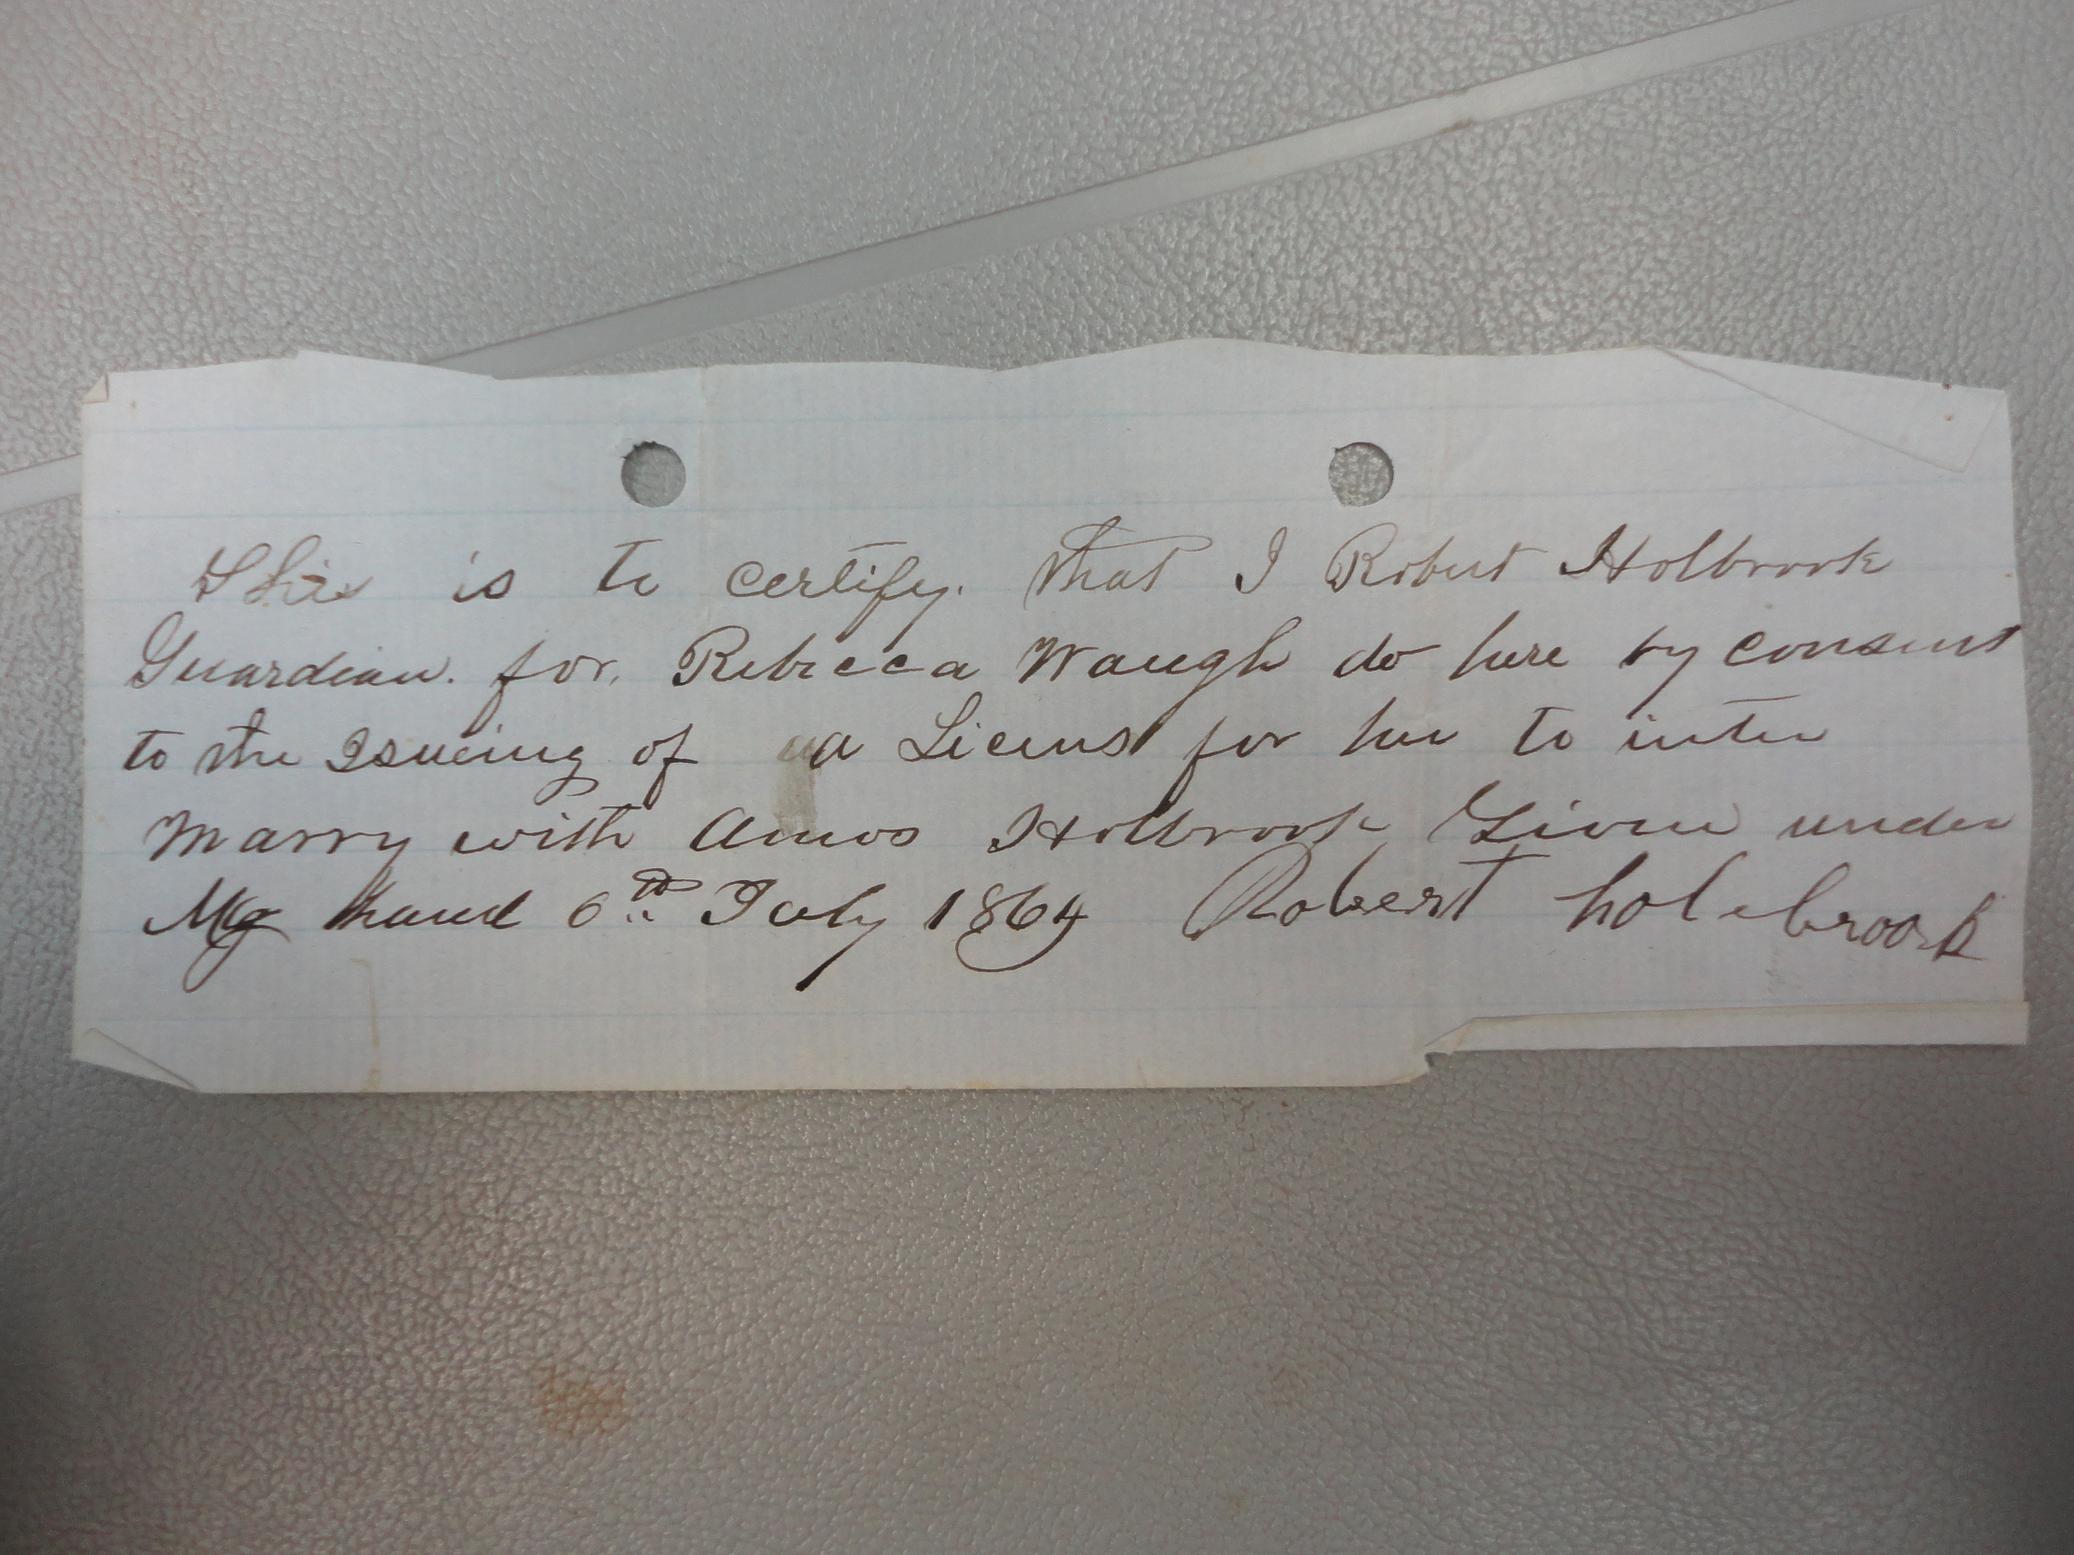 This is to certify. that I Robert Holbrook
Guardian. for. Rebecca Waugh do here by consent
to the Issueing of a Licens for her to inter
Marry with Amos Holbrook Given under
My hand 6th July 1864 Robert holebrook